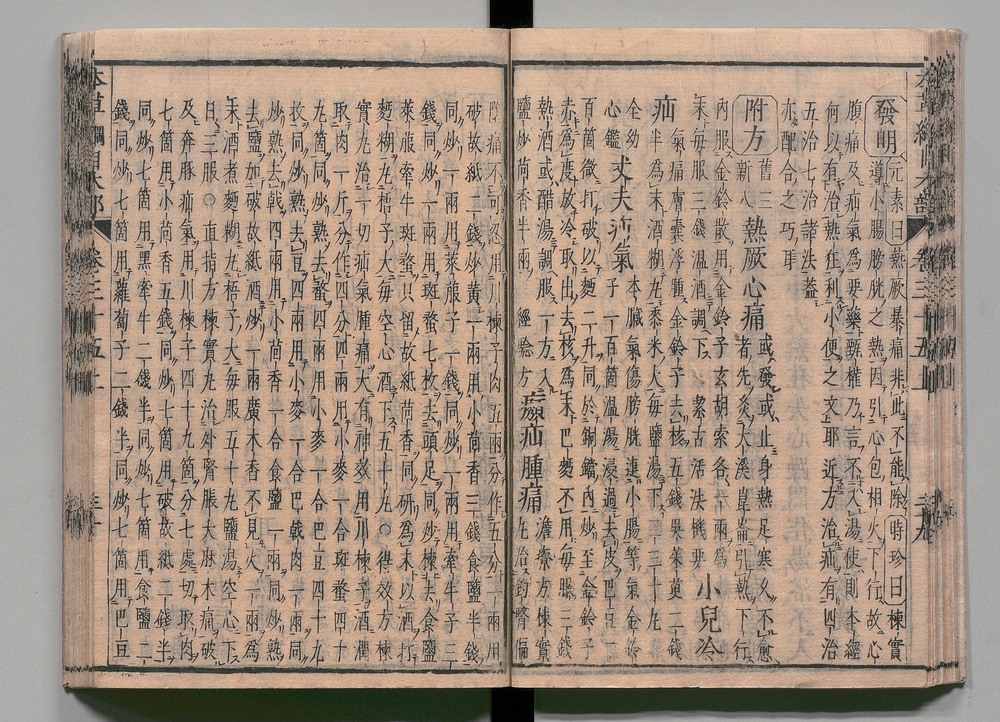 發明 元素曰熱厥暴痛非此不能除時珍曰楝實
導小腸膀胱之熱因引心包相火下行故心
腹痛及疝氣為要藥甄權乃言不入湯使則本經
何以有治熱狂利小便之文耶近方治疝有四治
五治七治諸法蓋
亦配合之巧耳
附方 舊三新八 熱厥心痛 或發或止身熱足寒久不愈
者先灸大溪崑崙引熱下行
內服金鈴散用金鈴子玄胡索各一兩為
末每服三錢溫酒調下 潔古活法機要 小兒冷
疝 氣痛膚囊浮腫金鈴子去核五錢吳茱萸二錢
半為末酒糊丸黍米大每鹽湯下二三十丸
全幼
心鑑 丈夫疝氣 本臟氣傷膀胱連小腸等氣金鈴子一
百箇溫湯浸過去皮巴豆
百箇微打破以麪二升同於銅鐺內炒至金鈴子
赤為度放冷取出去核為末巴麪不用每服三錢
熱酒或醋湯調服一方入
鹽炒茴香半兩 經驗方 㿗疝腫痛 澹寮方楝實
丸治釣腎偏
墜痛不可忍用川楝子肉五兩分作五分一兩用
破故紙二錢炒黃一兩用小茴香三錢食鹽半錢
同炒一兩用萊菔子一錢同炒一兩用牽牛子三
錢同炒一兩用斑蝥七枚去頭足同炒揀去食鹽
萊菔牽牛斑蝥只留故紙茴香同研為末以酒打
麪糊丸梧子大每空心酒下五十丸〇得效方楝
實丸治一切疝氣腫痛大有神效用川楝子酒潤
取肉一斤分作四分四兩用小麥一合斑蝥四十
九箇同炒熟去蝥四兩用小麥一合巴豆四十九
枚同炒熟去豆四兩用小麥一合巴戟肉一兩同
炒熟去戟四兩用小茴香一合食鹽一兩同炒熟
去鹽加破故紙酒炒一兩廣木香不見火一兩為
末酒煮麪糊丸梧子大每服五十丸鹽湯空心下
日三服〇直指方楝實丸治外腎脹大麻木痛破
及奔豚疝氣用川楝子四十九箇分七處切取肉
七箇用小茴香五錢同炒七箇用破故紙二錢半
同炒七箇用黑牽牛二錢半同炒七箇用食鹽二
錢同炒七箇用蘿蔔子二錢半同炒七箇用巴豆